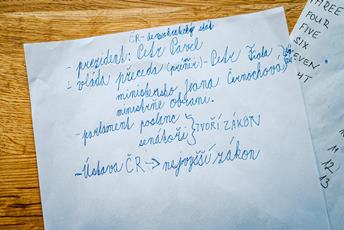 ČR - demokratický stát
- prezident: Petr Pavel
- vláda předseda (premiér) - Petr Fiala
ministerstvo Jana Černochová
ministryně obrany.
- parlament poslanc
senátoři } TVOŘÍ ZÁKON
- Ústava ČR → nejvyšší zákon
THREE
FOUR
FIVE
SIX
EVEN
11
12
13